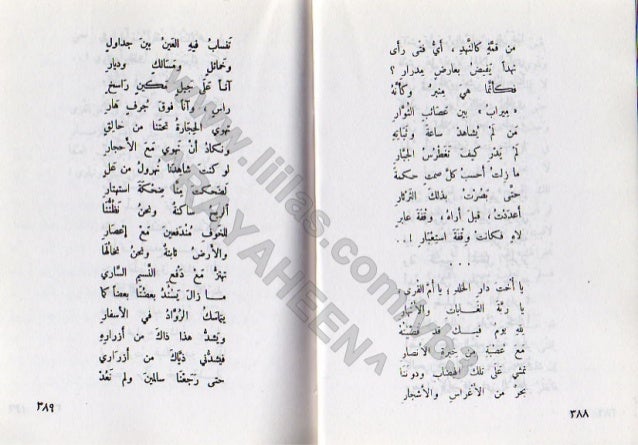 من قمّةٍ كالنّهدِ ، أيُّ فتىً رأى
نهداً يَفيضُ بعارضٍ مدرارِ ؟
فكأنّما هي منبرٌ وكأنّهُ
« ميرابُ » بين عصائبِ الثّوّارِ
من لم يُشاهدْ ساعةً وثباتِهِ
لم يَدرِ كيفَ تَغَطْرُسُ الجبّارِ
ما زلتُ أحسبُ كلَّ صمتٍ حكمةً
حتّى بَصُرتُ بذلكَ الثّرثارِ
أعددتُ ، قبلَ أراهُ ، وقفةَ عابرٍ
لاهٍ فكانتْ وقفةَ استعبارِ ! ..
يا أختَ دارِ الخلدِ ، يا أمّ القُرى ،
يا ربّةَ الغاباتِ والأنهارِ
للهِ يومٌ فيكِ قد قضّيتُهُ
معَ عصبةٍ من خيرةِ الأنصارِ
نمشي على تلكَ الهضابِ ودوننا
بحرٌ من الأغراسِ والأشجارِ
٣٨٨
تنسابُ فيهِ العينُ بينَ جداولٍ
وخمائلٍ ومسالكٍ وديارِ
آناً على جبلٍ مكينٍ راسخٍ
راسٍ ، وآناً فوقَ جُرفٍ هارِ
تهوي الحجارةُ تحتنا من حالقٍ
ونكادُ أنْ نهوي معَ الأحجارِ
لو كنتَ شاهدَنا نُهرولُ من عَلٍ
لضحكتَ منّا ضحكةَ استهتارِ
الريحُ ساكنةٌ ونحنُ نَظُنُّنا
للخوفِ مُندفعينَ معَ إعصارِ
والأرضُ ثابتةٌ ونحنُ نخالُها
تهتزُّ معَ دفعِ النّسيمِ السّاري
ما زالَ يَسنُدُ بعضُنا بعضاً كما
يتماسكُ الرُّوّادُ في الأسفارِ
ويَشدُّ هذا ذاكَ من أزرارهِ
فيشدُّني ذيّاكَ من أزراري
حتى رَجَعْنا سالمينَ ولم نَعُدْ
٣٨٩
www.liilas.com/vb3
^RAYAHEEN^